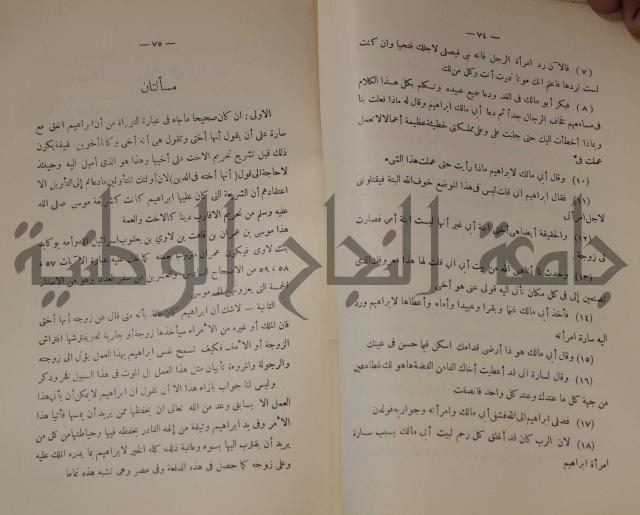 — ٧٤ —
(٧) فالآن رد امرأة الرجل فانه نبي فيصلى لاجلك فتحيا وان كنت
لست تردها فاعلم انك موتا تموت أنت وكل من لك
(٨) فبكر أبو مالك فى الغد ودعا جميع عبيده وتكلم بكل هذا الكلام
فى مسامعهم فخاف الرجل جداً ثم دعا أبي مالك ابراهيم وقال له ماذا فعلت بنا
وبماذا أخطأت اليك حتى جلبت على وعلى مملكتى خطيئة عظيمة أعمالا لاتعمل
عملت بى
(١٠) وقال أبي مالك لابراهيم ماذا رأيت حتى عملت هذا الشىء
(١١) فقال ابراهيم انى قلت ليس فى هذا الموضع خوف الله البتة فيقتلوننى
لاجل امرأتى
(١٢) والحقيقة أيضا هى أختى ابنة أبى غير أنها ليست ابنة أمى فصارت
لى زوجة
(١٣) وحدث لما أتاهنى الله من بيت أبى انى قلت لها هذا معروفك الذى
تصنعين إلى فى كل مكان نأتى اليه قولى عنى هو أخى
(١٤) فأخذ أبي مالك غنما وبقرا وعبيدا وإماء وأعطاها لابراهيم ورد
اليه سارة امرأته
(١٥) وقال أبي مالك هو ذا أرضى قدامك اسكن فيما حسن فى عينيك
(١٦) وقال لسارة انى قد أعطيت أخاك الفا من الفضة ها هو لك غطاء عين
من جهة كل ما عندك وعند كل واحد فانصفت
(١٧) فصلى ابراهيم الى الله فشفى أبي مالك وامرأته وجواريه فولدن
(١٨) لان الرب كان قد أغلق كل رحم لبيت أبي مالك بسبب سارة
امرأة ابراهيم
— ٧٥ —
مسألتان
الاولى : ان كان صحيحا ماجاء فى عبارة التوراة من أن ابراهيم اتفق مع
سارة على أن يقول أنها أختى وتقول هى أنه أخى وكانا أخوين حقيقة يكون
ذلك قبل تشريع تحريم الاخت على أخيها وهذا هو الذى أميل اليه وحينئذ
لا حاجة الى قول (أنها أخته فى الدين) لان أولئك المتأولين مادعاهم إلى التأويل الا
اعتقادهم أن الشريعة التى كان عليها ابراهيم كانت كشريعة موسى صلى الله
عليه وسلم من تحريم الاقارب دينا كالاخت والعمة
هذا موسى بن عمران بن قاهت بن لاوي بن يعقوب اسرائيل الله وأمه يوكابد
بنت لاوى فيكون عمران متزوجا بعمته كما تدل عليه الآيات ٥٧ ،
٥٨ ، ٥٩ من الاصحاح السادس والعشرين من سفر العدد وهو من الاسفار
الخمسة التى يعزونها الى موسى
الثانية — لاشك أن ابراهيم كان عالما بأنه متى قال عن زوجه أنها أختى
فان الملك أو غيره من الامراء سيأخذها زوجة أو جارية له يفترشها افتراش
الزوجة أو الامة فكيف تسمح نفس ابراهيم بهذا العمل يؤل الى زوجته
والرجولة والمروءة تأبيان مثل هذا العمل بل الموت فى هذا السبيل فخر وذكر
وليس لنا جواب بازاء هذا الا أن نقول ان ابراهيم لا يمكن أن يأتى هذا
العمل الا بسابق وعد من الله تعالى ان يحفظها ممن يريد أن يمسها فأتيا هذا
الامر وفى يد ابراهيم وثيقة من إلهه القادر بحفظه فيها وحياطتها من كل من
يريد أن يقترب اليها بسوء وعاقبة ذلك كله الخير لابراهيم بما يدره الملك عليه
وعلى زوجه كما حصل فى هذه الدفعة وفى مصر وهى تشبه هذه تماما
جامعة النجاح الوطنية